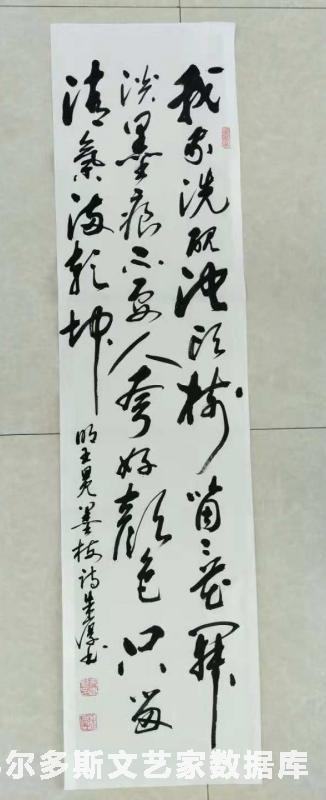 我家洗砚池头树箇々花開
淡墨痕不要人夸好颜色只留
清氣满乾坤
明王冕墨梅诗朱淳书
尔多斯文艺家数据库